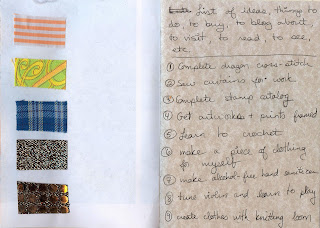 List of ideas, things to
do, to buy, to blog about
to visit, to read, to see,
etc.
① Complete dragon cross-stitch
② Sew curtains for work
③ Complete stamp catalog
④ Get artworks + prints framed
⑤ Learn to crochet
⑥ make a piece of clothing
for myself
⑦ make alcohol-free hand
⑧ tune violin and learn to play
⑨ create clothes with knitting loom